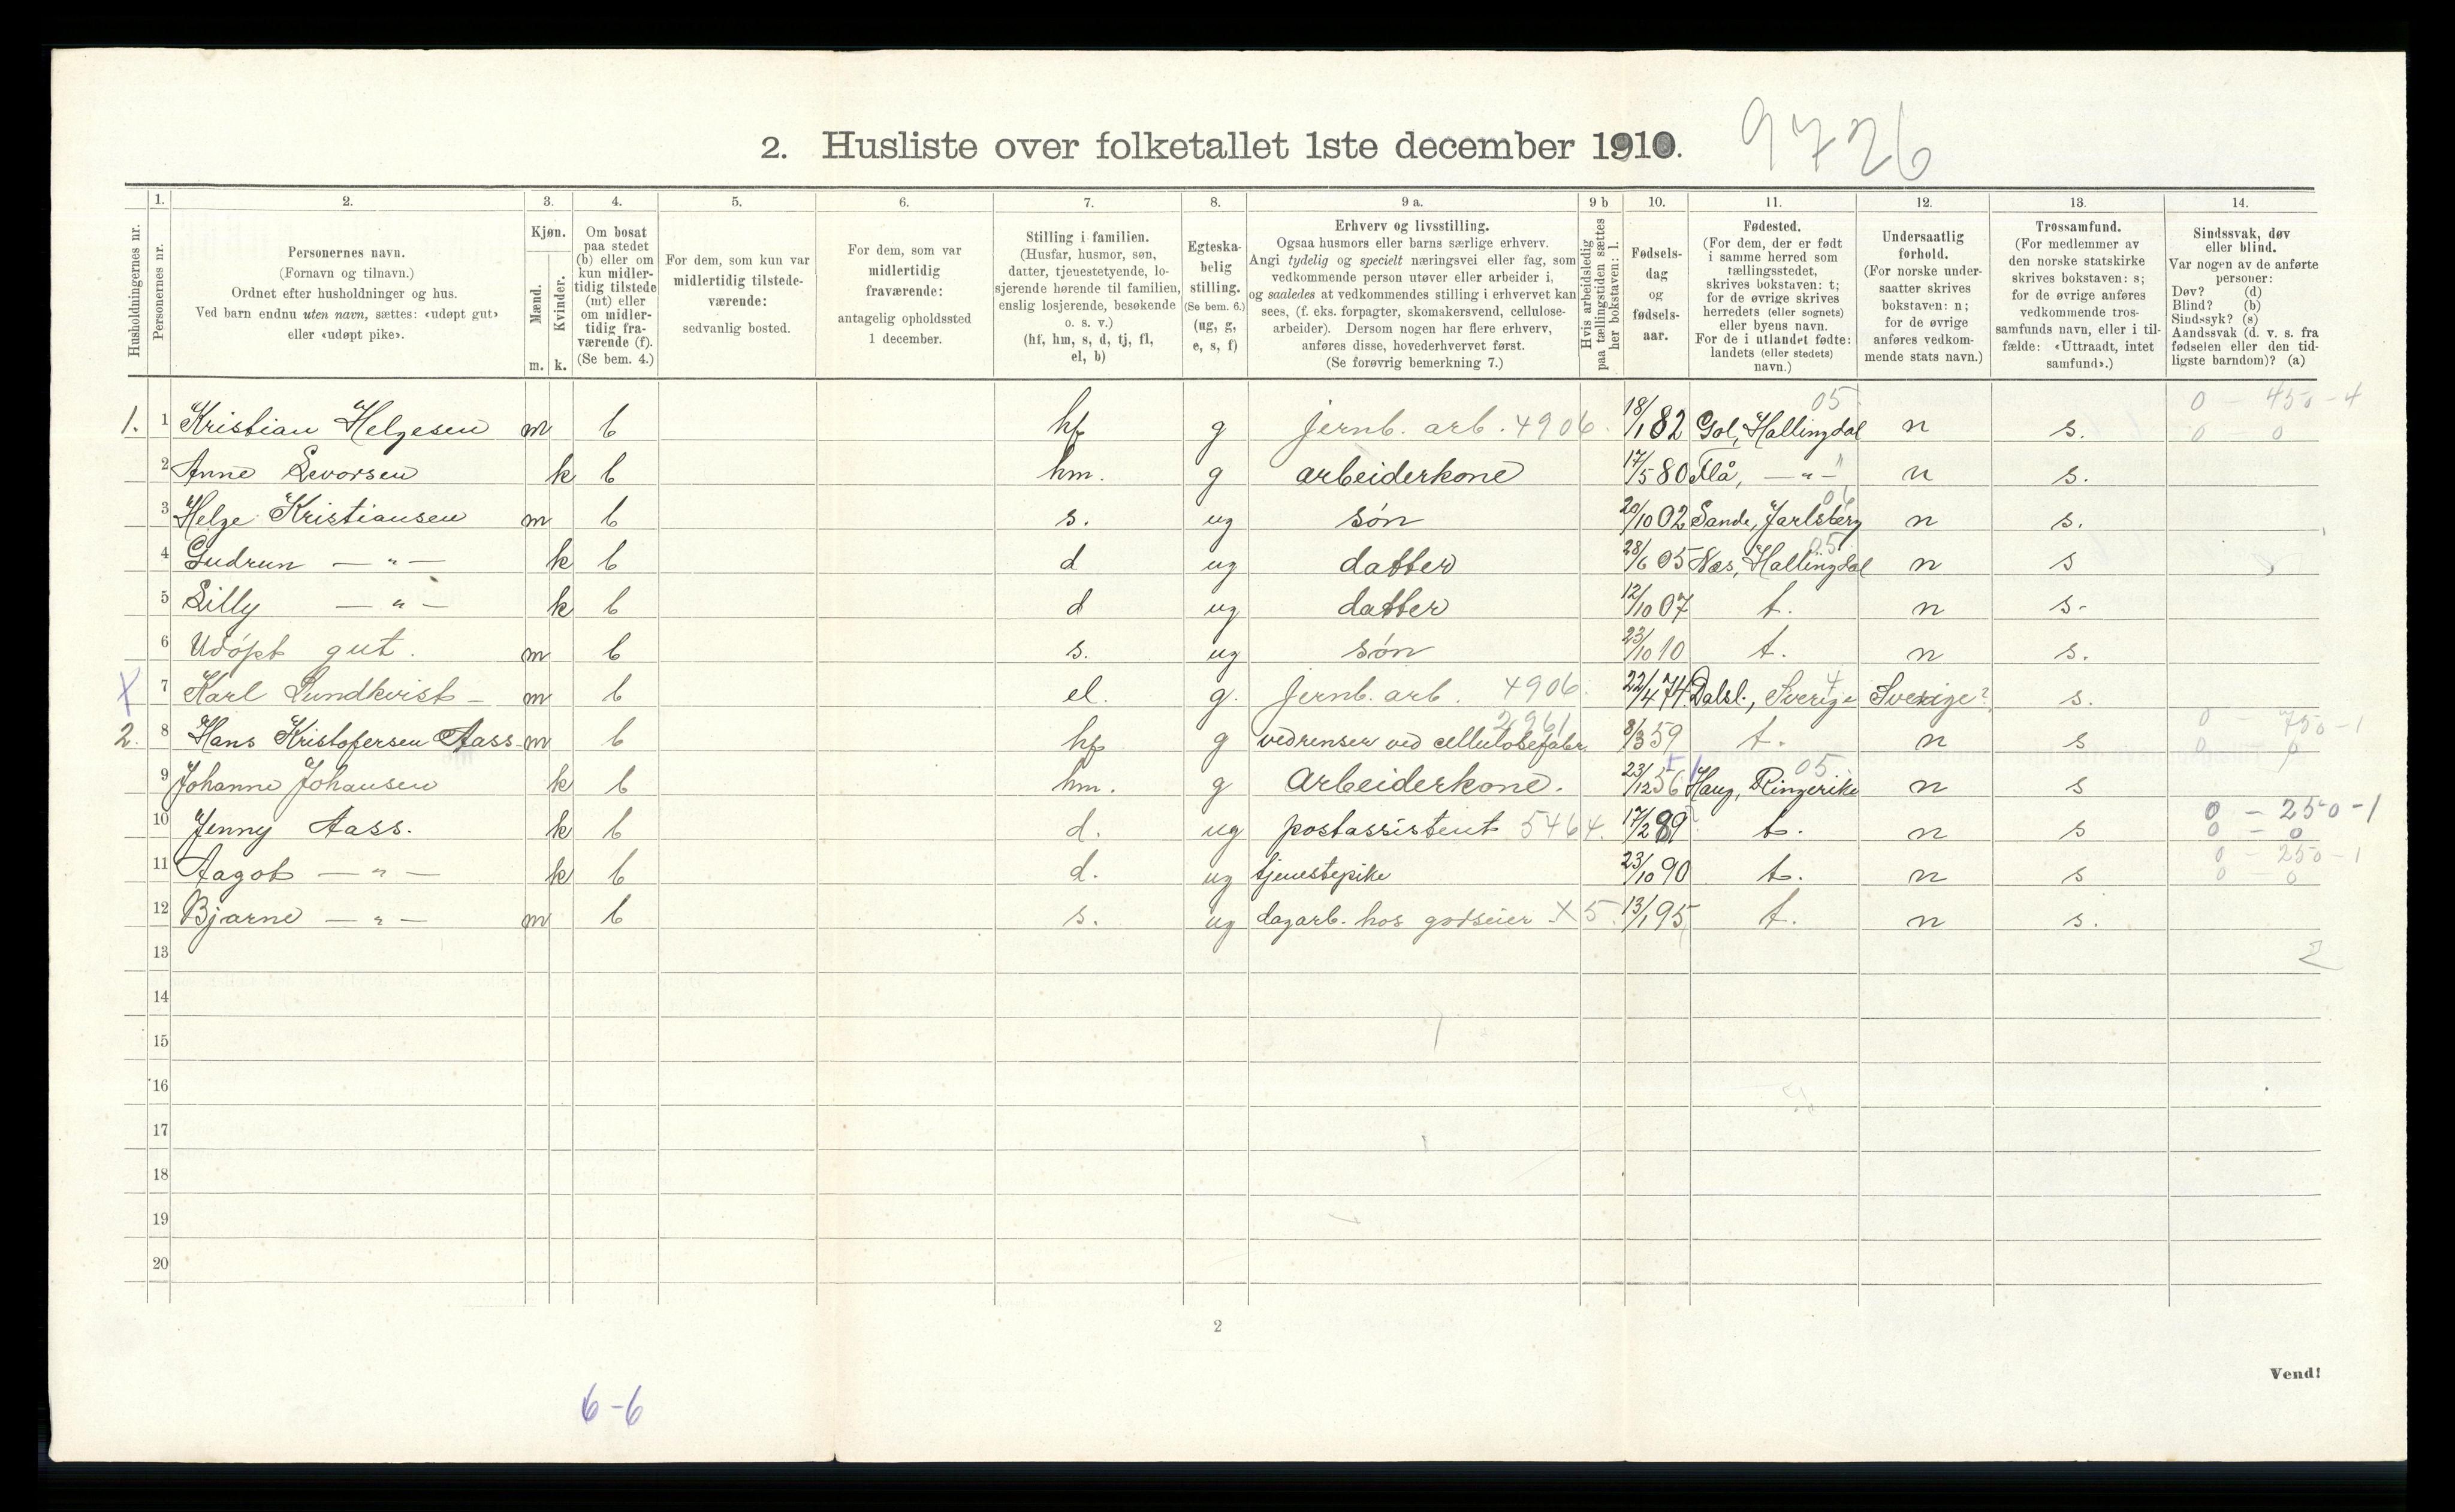 2. Husliste over folketallet 1ste december 1910. 9726
1. 2. 3. 4. 5. 6. 7. 8. 9 a. 9 b 10. 11. 12. 13. 14.
Husholdningernes nr.
Personernes nr.
Personernes navn.
(Fornavn og tilnavn.)
Ordnet efter husholdninger og hus.
Ved barn endnu uten navn, sættes: «udøpt gut»
eller «udøpt pike».
Kjøn.
Mænd.
Kvinder.
m. k.
Om bosat
paa stedet
(b) eller om
kun midler-
tidig tilstede
(mt) eller
om midler-
tidig fra-
værende (f).
(Se bem. 4.)
For dem, som kun var
midlertidig tilstede-
værende:
sedvanlig bosted.
For dem, som var
midlertidig
fraværende:
antagelig opholdssted
1 december.
Stilling i familien.
(Husfar, husmor, søn,
datter, tjenestetyende, lo-
sjerende hørende til familien,
enslig losjerende, besøkende
o. s. v.)
(hf, hm, s, d, tj, fl,
el, b)
Egteska-
belig
stilling.
(Se bem. 6.)
(ug, g,
e, s, f)
Erhverv og livsstilling.
Ogsaa husmors eller barns særlige erhverv.
Angi tydelig og specielt næringsvei eller fag, som
vedkommende person utøver eller arbeider i,
og saaledes at vedkommendes stilling i erhvervet kan
sees, (f. eks. forpagter, skomakersvend, cellulose-
arbeider). Dersom nogen har flere erhverv,
anføres disse, hovederhvervet først.
(Se forøvrig bemerkning 7.)
Hvis arbeidsledig
paa tællingstiden sættes
her bokstaven: l.
Fødsels-
dag
og
fødsels-
aar.
Fødested.
(For dem, der er født
i samme herred som
tællingsstedet,
skrives bokstaven: t;
for de øvrige skrives
herredets (eller sognets)
eller byens navn.
For de i utlandet fødte:
landets (eller stedets)
navn.)
Undersaatlig
forhold.
(For norske under-
saatter skrives
bokstaven: n;
for de øvrige
anføres vedkom-
mende stats navn.)
Trossamfund.
(For medlemmer av
den norske statskirke
skrives bokstaven: s;
for de øvrige anføres
vedkommende tros-
samfunds navn, eller i til-
fælde: «Uttraadt, intet
samfund».)
Sindssvak, døv
eller blind.
Var nogen av de anførte
personer:
Døv? (d)
Blind? (b)
Sindssyk? (s)
Aandssvak (d. v. s. fra
fødselen eller den tid-
ligste barndom)? (a)
05 0 - 450 - 4
1. 1 Kristian Helgesen m b hf g jernb. arb. 4906. 18/1 82 Gol, Hallingdal n s. 0 - 0
2 Anne Sevorsen k b hm. g arbeiderkone 17/5 80 Flå, — " — n s.
06
3 Helge Kristiansen m b s. ug søn 20/10 02 Sande, Jarlsberg n s.
05
4 Gudrun — " — k b d ug datter 28/6 05 Næs, Hallingdal n s
5 Lilly — " — k b d ug datter 12/10 07 t. n s.
6 Udøpt gut. m b s. ug søn 23/10 10 t. n s.
4
X 7 Karl Lundkvist m b el. g. jernb. arb. 4906. 22/4 74 Dalsl., Sverige Sverige? s.
2961 0 750 - 1
2. 8 Hans Kristofersen Aass m b hf g vedrenser ved cellulosefabr. 8/3 59 t. n s 0 0
05
9 Johanne Johansen k b hm. g Arbeiderkone. 23/12 56 Haug, Ringerike n s
0 - 250 - 1
10 Jenny Aass. k b d. ug postassistent 5464. 17/2 89 t. n s 0 - 0
0 - 250 - 1
11 Aagot — " — k b d. ug tjenestepike 23/10 90 t. n s 0 - 0
12 Bjarne — " — m b s. ug dagarb. hos godseier X5. 13/1 95 t. n s.
13 2
14
15
16
17
18
19
20
2
Vend!
6-6